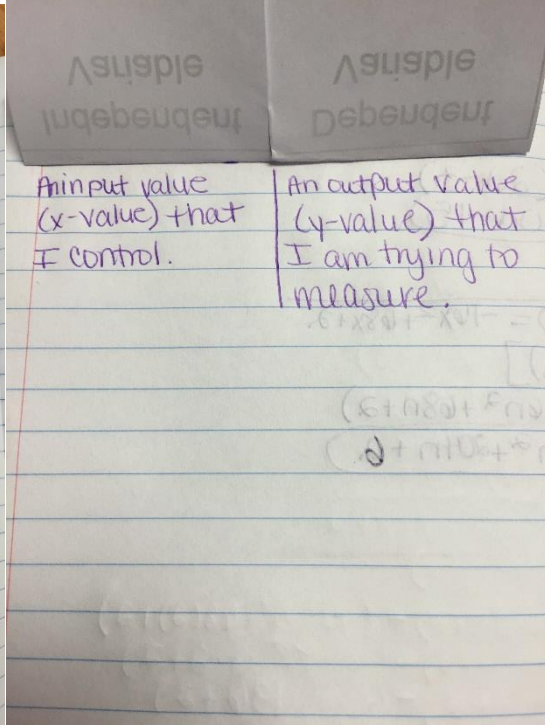 Independent Variable
Dependent Variable
An input value
(x-value) that
I control.
An output value
(y-value) that
I am trying to
measure.